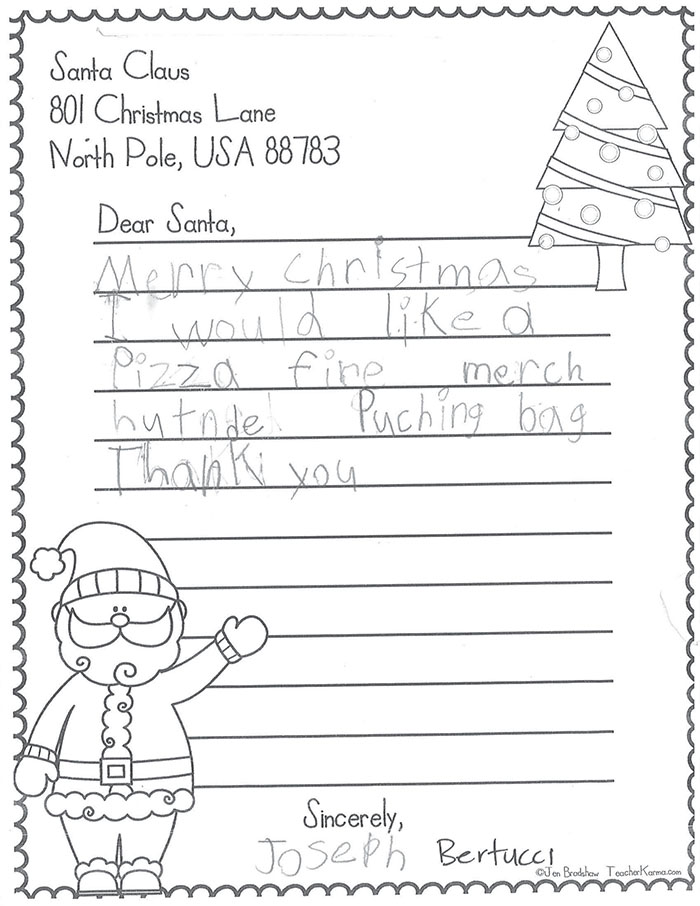 Santa Claus
801 Christmas Lane
North Pole, USA 88783
Dear Santa,
Merry Christmas
I would like a
Pizza fire merch
hutnde Puching bag
Thank you
Sincerely,
Joseph Bertucci
©Jen Bradshaw TeacherKarma.com